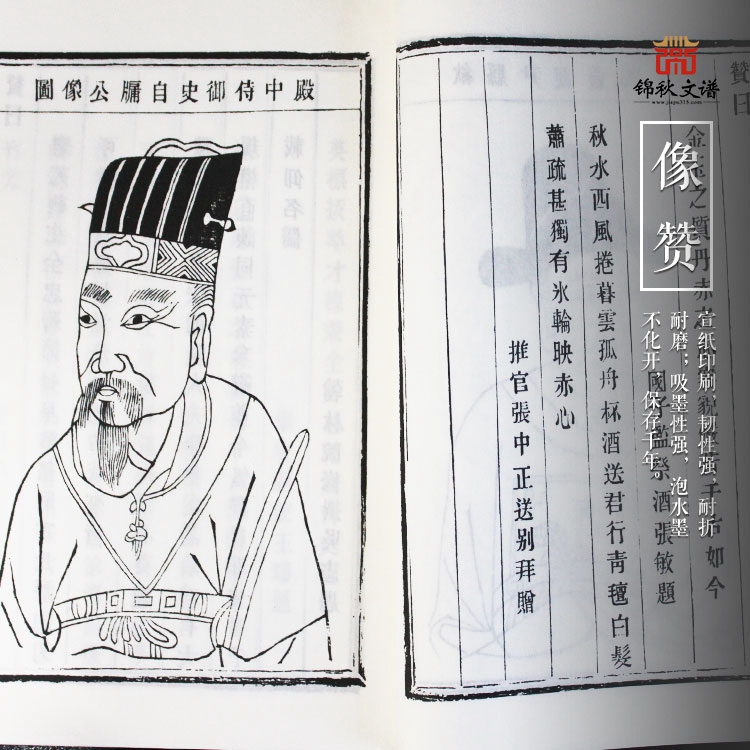 锦秋文谱
www.jiapu315.com
像赞
宣纸印刷 韧性强，耐折
耐磨；吸墨性强，泡水墨
不化开 保存千年。
贊曰
金玉之質丹赤 如今
國子監祭酒張敏題
秋水西風捲暮雲孤舟杯酒送君行青氊白髮
蕭疏甚獨有氷輪映赤心
推官張中正送别拜贈
殿中侍御史自牖公像圖